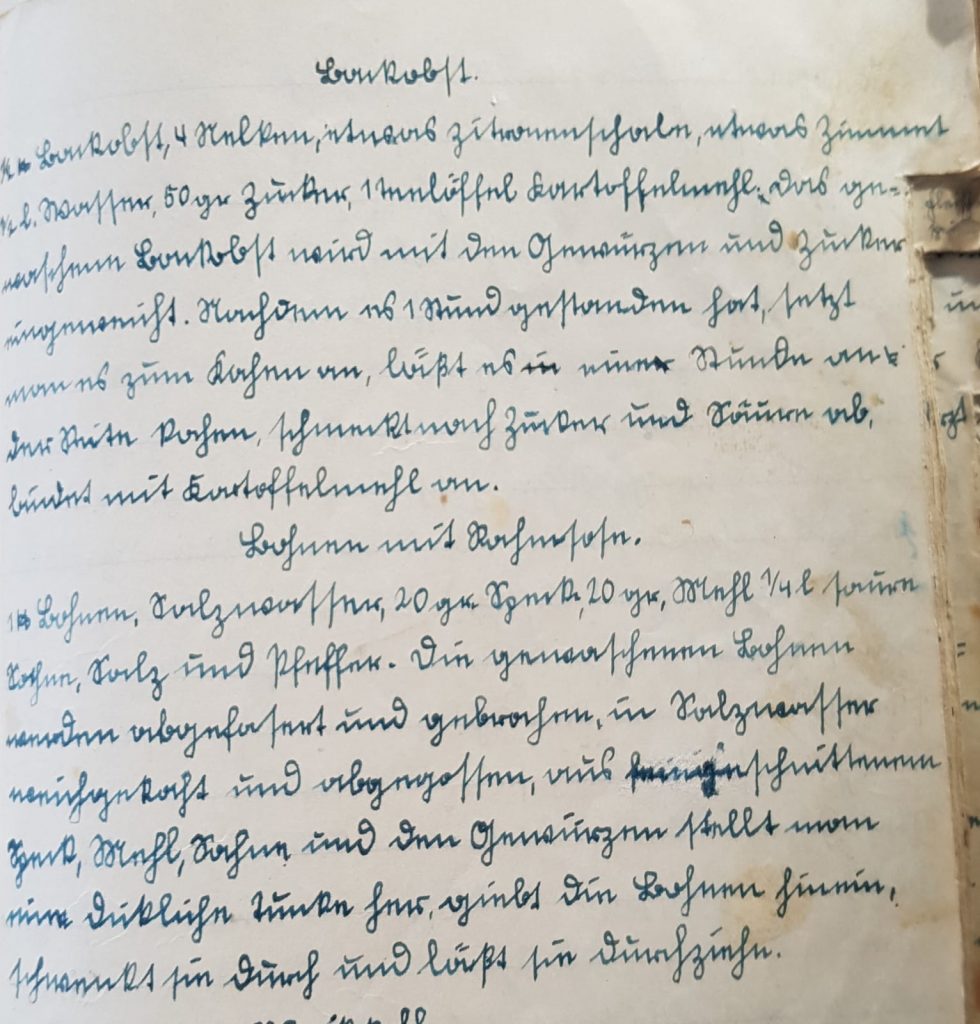 Backobst.
½ kg Backobst, 4 Nelken, etwas Zitronenschale, etwas Zimmet
½ l. Wasser, 50 gr Zucker, 1 Teelöffel Kartoffelmehl. Das ge-
waschene Backobst wird mit den Gewürzen und Zucker
eingeweicht. Nachdem es 1 Stund gestanden hat, setzt
man es zum Kochen an, läßt es eine Stunde an
der Seite kochen, schmeckt nach Zucker und Säure ab,
bindet mit Kartoffelmehl an.
Bohnen mit Rahmsose.
1 kg Bohnen, Salzwasser, 20 gr. Speck, 20 gr, Mehl ¼ l saure
Sahne, Salz und Pfeffer. Die gewaschenen Bohnen
werden abgefasert und gebrochen, in Salzwasser
weichgekocht und abgegossen, aus feingeschnittenem
Speck, Mehl, Sahne und den Gewürzen stellt man
eine dickliche Tunke her, giebt die Bohnen hinein,
schwenkt sie durch und läßt sie durchziehn.